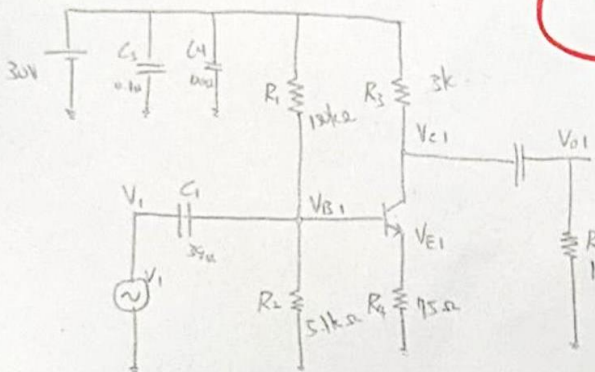 30V
C3
0.1u
C4
R1
R3
3k
VC1
VO1
V1
C1
39u
VB1
VE1
V1
R2
5.1kΩ
R4
75Ω
R